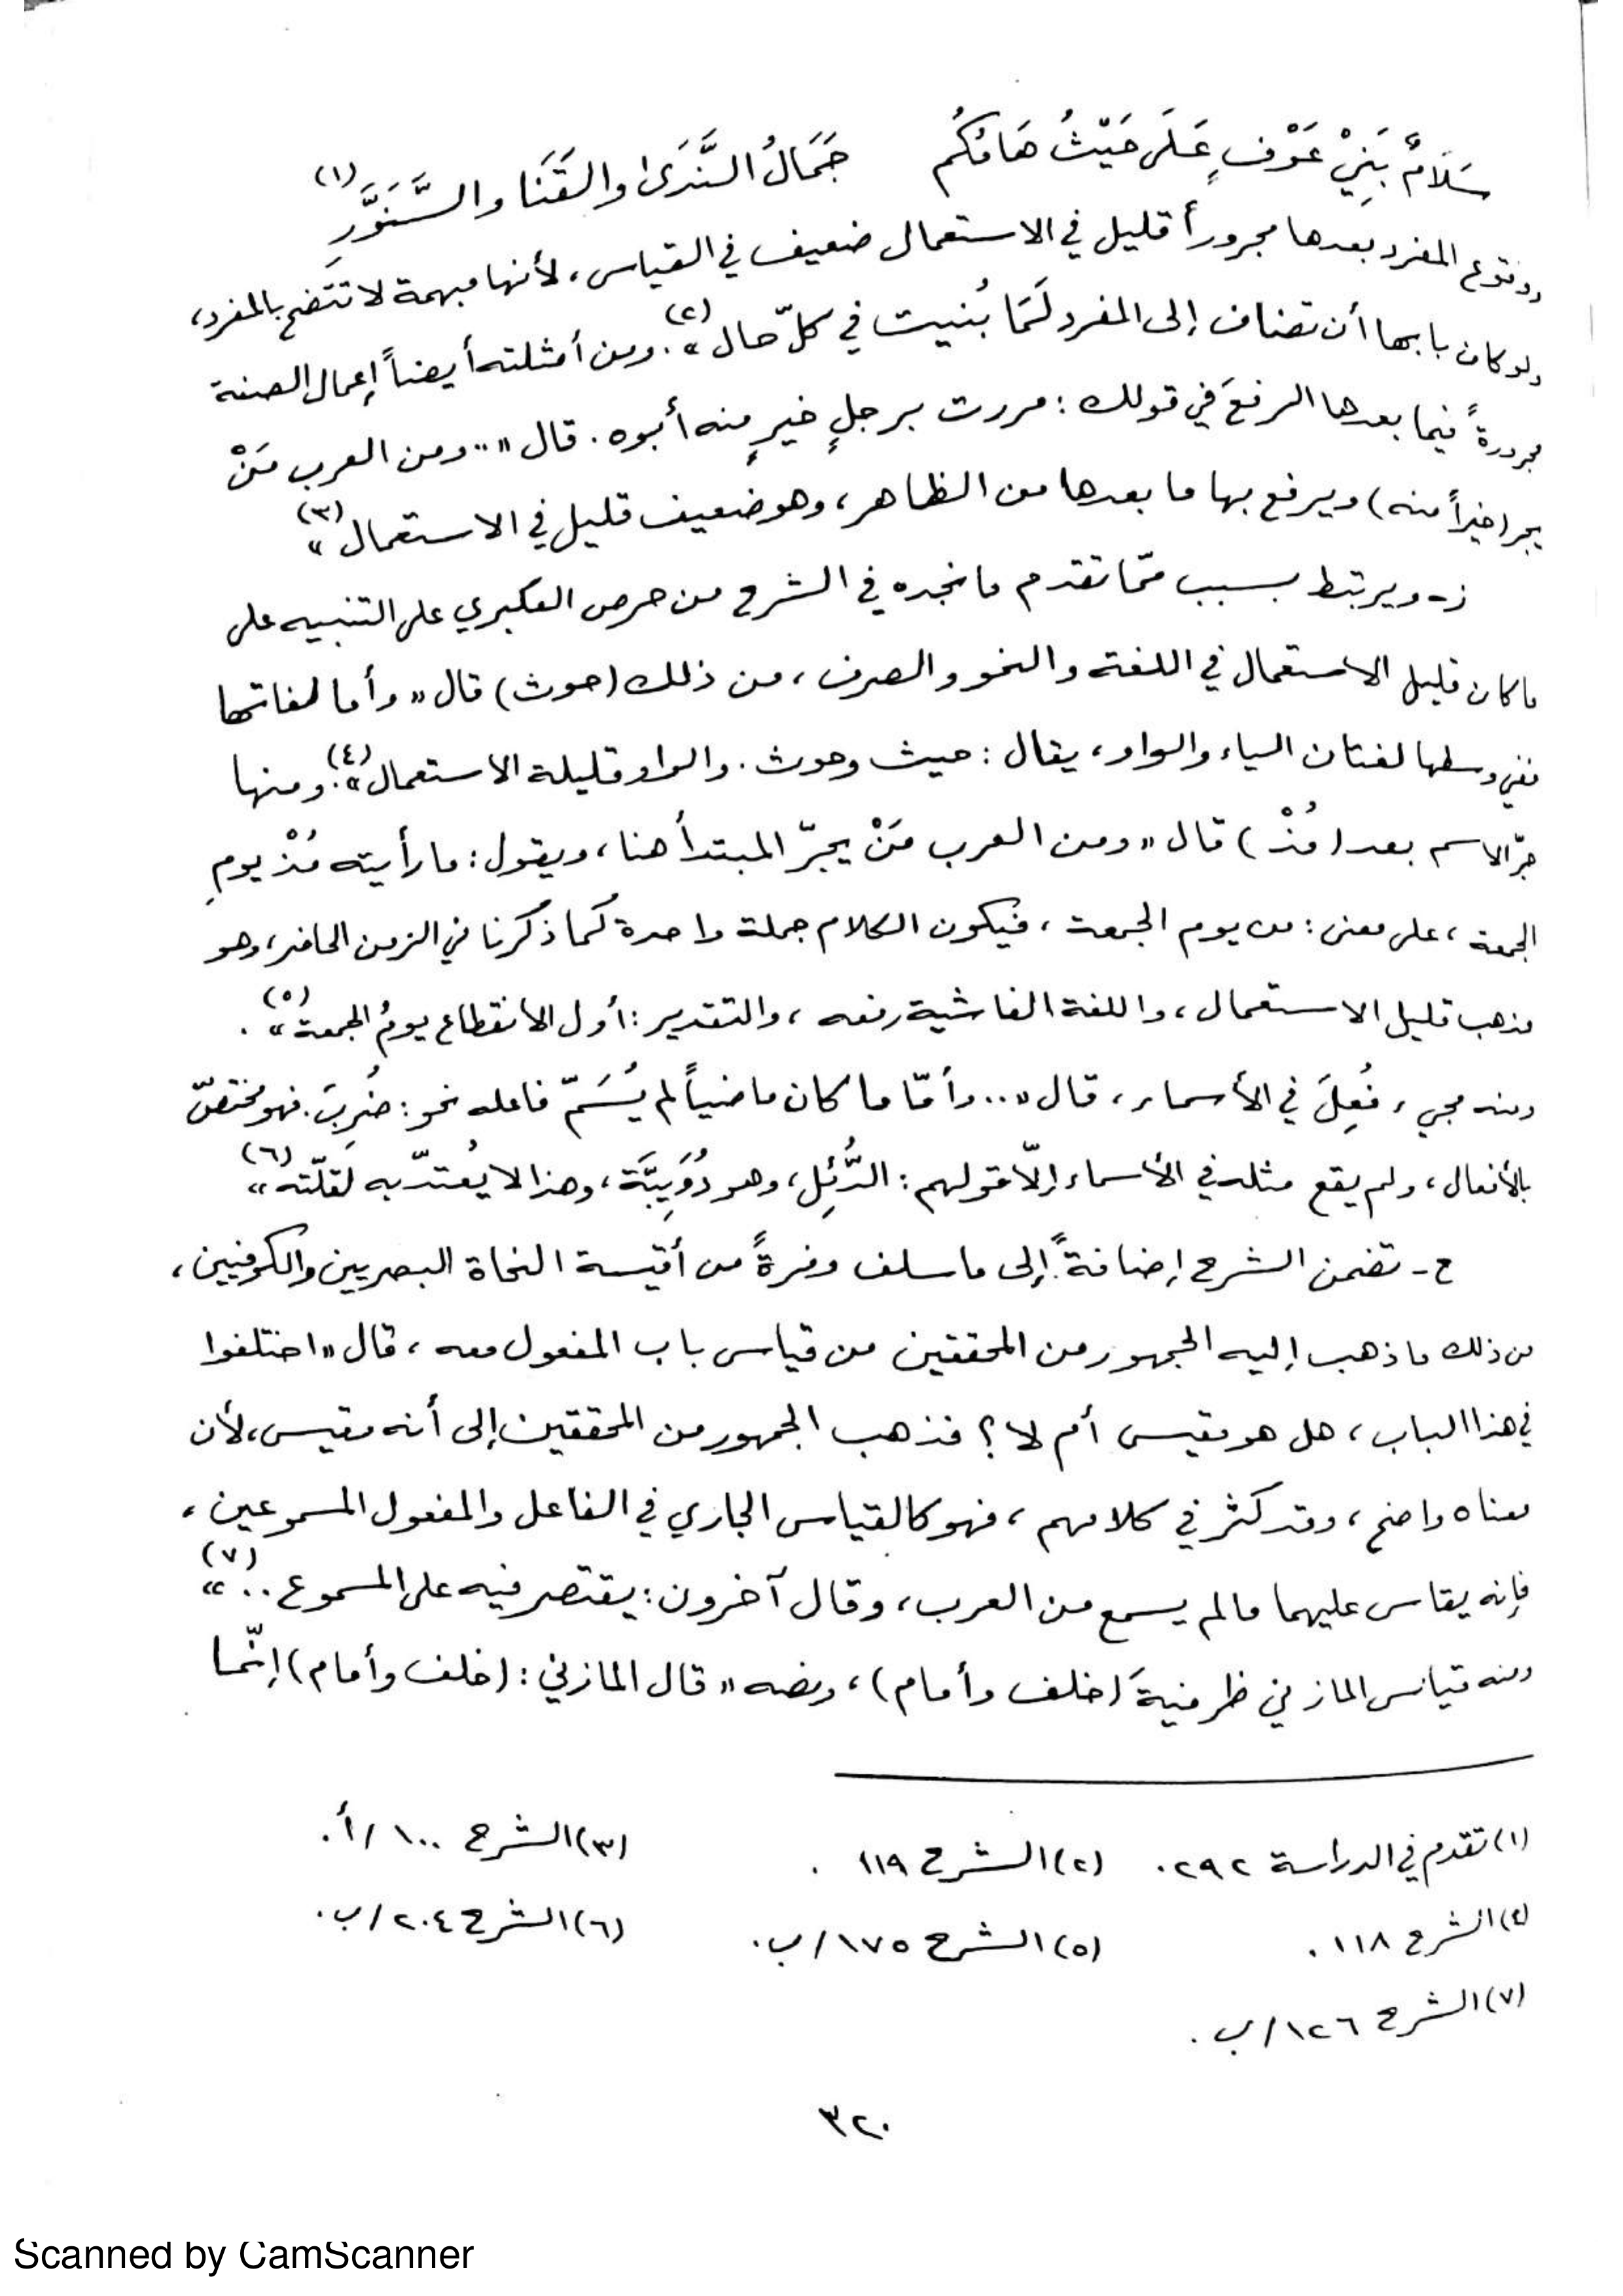 سَلَامٌ بَنِيْ عَوْفٍ عَلَى حَيْثُ هَامُكُم جَمَالُ النَّدَىٰ والقَنَا والسَّنَوَّرِ (١)
ووقوع المفرد بعدها مجروراً قليل في الاستعمال ضعيف في القياس، لأنها مبهمة لا تتضح بالمفرد،
ولو كان بابها أن تضاف إلى المفرد لَمَا بُنيت في كلّ حال» (٢). ومن أمثلته أيضاً إعمال الصفة
مجرورةً فيما بعدها الرفعَ في قولك: مررت برجلٍ خيرٍ منه أبوه. قال «.. ومن العرب مَنْ
يجر (خيراً منه) ويرفع بها ما بعدها من الظاهر، وهو ضعيف قليل في الاستعمال» (٣)
ز- ويرتبط بسبب ممّا تقدم ما نجده في الشرح من حرص العكبري على التنبيه على
ما كان قليل الاستعمال في اللغة والنحو والصرف، من ذلك (حوث) قال «وأما لغاتها
ففي وسطها لغتان الياء والواو، يقال: حيث وحوث. والواو قليلة الاستعمال» (٤). ومنها
جرّ الاسم بعد (مُنْذُ) قال «ومن العرب مَنْ يجرّ المبتدأ هنا، ويقول: ما رأيته مُنْذُ يومِ
الجمعة، على معنى: من يوم الجمعة، فيكون الكلام جملة واحدة كما ذكرنا في الزمن الحاضر، وهو
مذهب قليل الاستعمال، واللغة الفاشية رفعه، والتقدير: أول الانقطاع يومُ الجمعة» (٥).
ومنه مجيء فُعِلَ في الأسماء، قال «.. وأمّا ما كان ماضياً لم يُسَمّ فاعله نحو: ضُرِبَ. فهو مختصّ
بالأفعال، ولم يقع مثله في الأسماء إلّا قولهم: الدُّئِل، وهو دُوَيِبَّة، وهذا لا يُعتدّ به لقلّته» (٦)
ح- تضمن الشرح إضافةً إلى ما سلف وفرةً من أقيسة النحاة البصريين والكوفيين،
من ذلك ما ذهب إليه الجمهور من المحققين من قياس باب المفعول معه، قال «اختلفوا
في هذا الباب، هل هو مقيس أم لا؟ فذهب الجمهور من المحققين إلى أنه مقيس، لأن
معناه واضح، وقد كثر في كلامهم، فهو كالقياس الجاري في الفاعل والمفعول المسموعين،
فإنه يقاس عليهما ما لم يسمع من العرب، وقال آخرون: يقتصر فيه على المسموع ..» (٧)
ومنه قياس المازني ظرفيةَ (خلف وأمام)، ونصه «قال المازني: (خلف وأمام) إنّما
(١) تقدم في الدراسة ٢٩٢. (٢) الشرح ١١٩. (٣) الشرح ١٠٠/أ.
(٤) الشرح ١١٨. (٥) الشرح ١٧٥/ب. (٦) الشرح ٢٠٤/ب.
(٧) الشرح ١٢٦/ب.
٣٢٠
Scanned by CamScanner